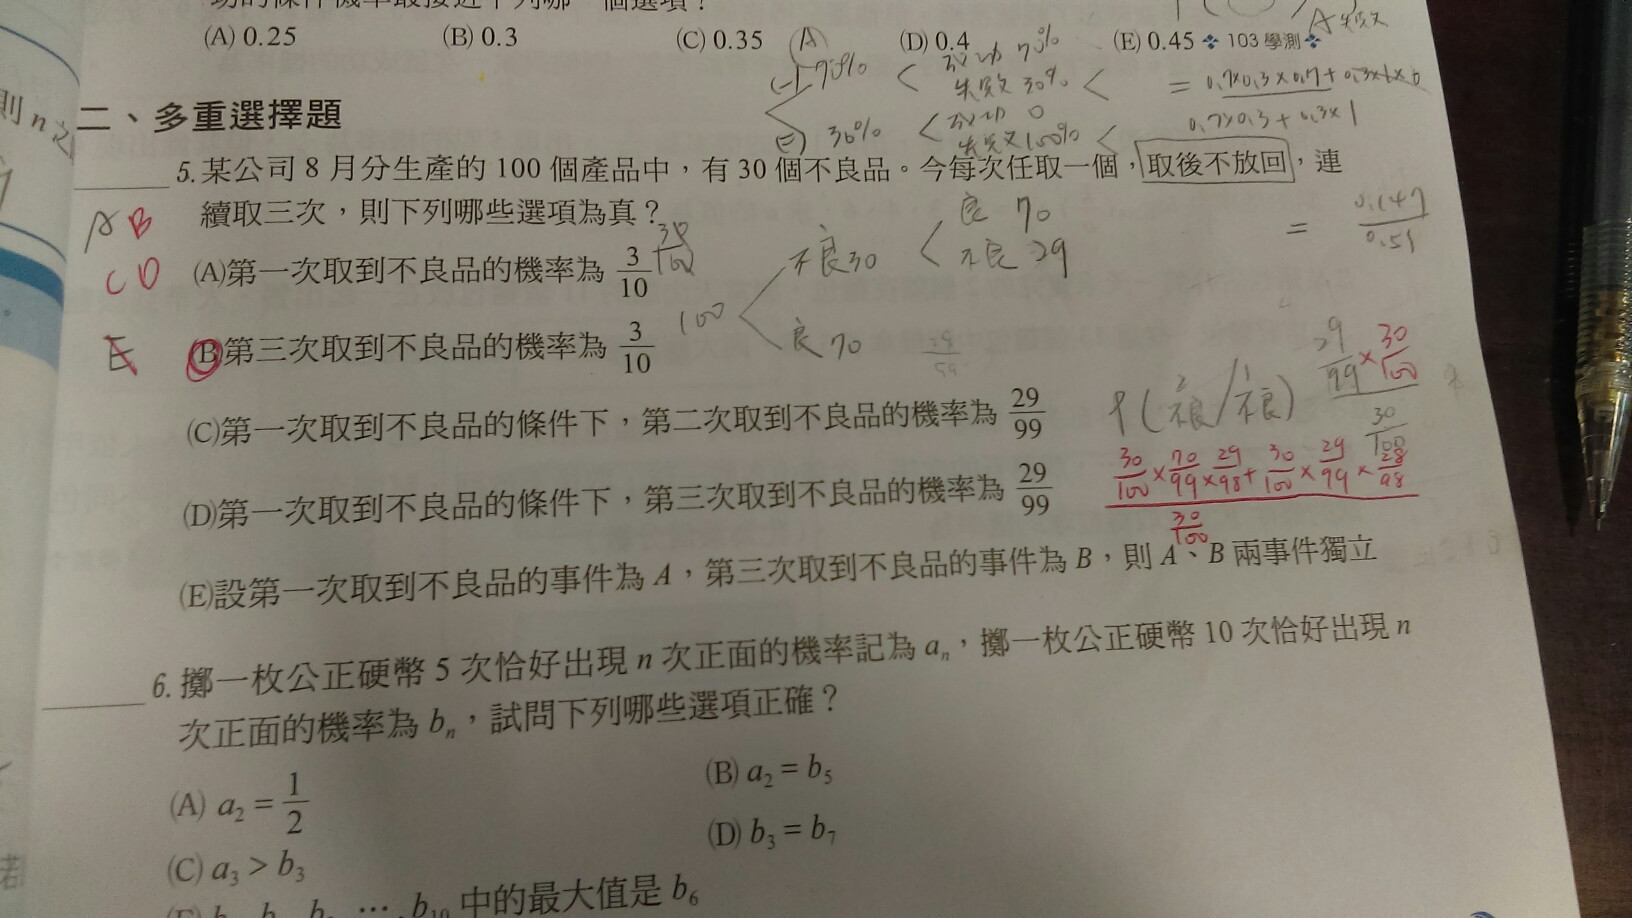 (A) 0.25 (B) 0.3 (C) 0.35 (D) 0.4 (E) 0.45 103 學測
二、多重選擇題
5. 某公司 8 月分生產的 100 個產品中，有 30 個不良品。今每次任取一個，取後不放回，連
續取三次，則下列哪些選項為真？
(A)第一次取到不良品的機率為 3/10
(B)第三次取到不良品的機率為 3/10
(C)第一次取到不良品的條件下，第二次取到不良品的機率為 29/99
(D)第一次取到不良品的條件下，第三次取到不良品的機率為 29/99
(E)設第一次取到不良品的事件為 A，第三次取到不良品的事件為 B，則 A、B 兩事件獨立
6. 擲一枚公正硬幣 5 次恰好出現 n 次正面的機率記為 aₙ，擲一枚公正硬幣 10 次恰好出現 n
次正面的機率為 bₙ，試問下列哪些選項正確？
(A) a₂ = 1/2
(B) a₂ = b₅
(C) a₃ > b₃
(D) b₃ = b₇
中的最大值是 b₆
則 n 之
A B
C D
E
A 失敗
(A)
70% < 成功 70%
失敗 30% <
30% < 成功 0
失敗 100% <
0.7×0.3+0.3×1
= 0.147/0.51
30/100
100
不良30 < 良 70
不良 29
良 70
29/99
29/99 × 30/100
30/100
30/100 × 70/99 × 29/98 + 30/100 × 29/99 × 28/98
30/100